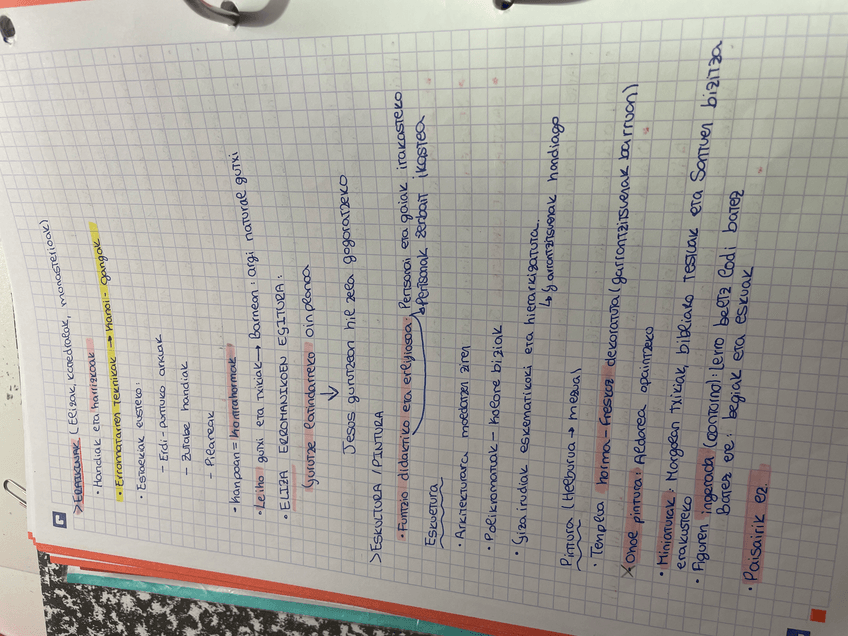 > ERAIKINAK (Elizak, Katedralak, monasterioak)
• Handiak eta harrizkoak
• Erromatarren teknikak → Kanoi-gangak
• Estaeiak eusteko:
– Erdi-puntuko arkuak
– zutabe handiak
– Pilareak
• Kanpoan = Kontrahormak
• Leiho gutxi eta txikiak → Barnean: argi natural gutxi
• ELIZA ERROMANIKOEN EGITURA:
Gurutze latindarreko oinplanoa
↓
Jesus gurutzean hil zela gogoratzeko
> ESKULTURA / PINTURA
• Funtzio didaktiko eta erlijiosoa: Pertsonai eta gaiak irakasteko
↳ Pertsonak zerbait ikastea
Eskultura
• Arkitekturara moldatzen ziren
• Polikromatuak – kolore biziak
• Giza irudiak eskematikoki eta hierarkizatuta.
↳ garrantzitsuenak handiago
Pintura (Helburua → mezua)
• Templua horma-freskoz dekoratua (garrantzitsuenak barruan)
x Ohol pintura: Aldarea apaintzeko
• Miniaturak: Margolan txikiak, bibliako testuak eta Santuen bizitza
erakusteko
• Figuren ingerada (contorno): lerro beltz lodi batez
batez ere: begiak eta eskuak
• Paisairik ez.